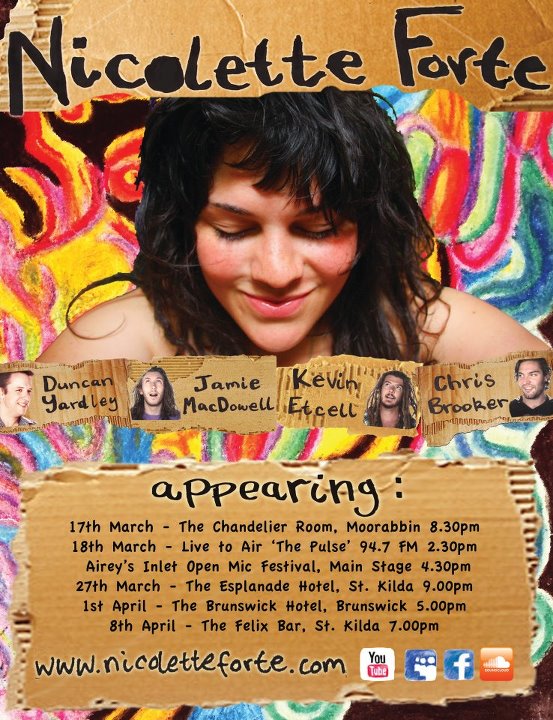 Nicolette Forte
Duncan Yardley
Jamie MacDowell
Kevin Etcell
Chris Brooker
appearing :
17th March - The Chandelier Room, Moorabbin 8.30pm
18th March - Live to Air ‘The Pulse’ 94.7 FM 2.30pm
Airey's Inlet Open Mic Festival, Main Stage 4.30pm
27th March - The Esplanade Hotel, St. Kilda 9.00pm
1st April - The Brunswick Hotel, Brunswick 5.00pm
8th April - The Felix Bar, St. Kilda 7.00pm
www.nicoletteforte.com
You Tube
f
SOUNDCLOUD